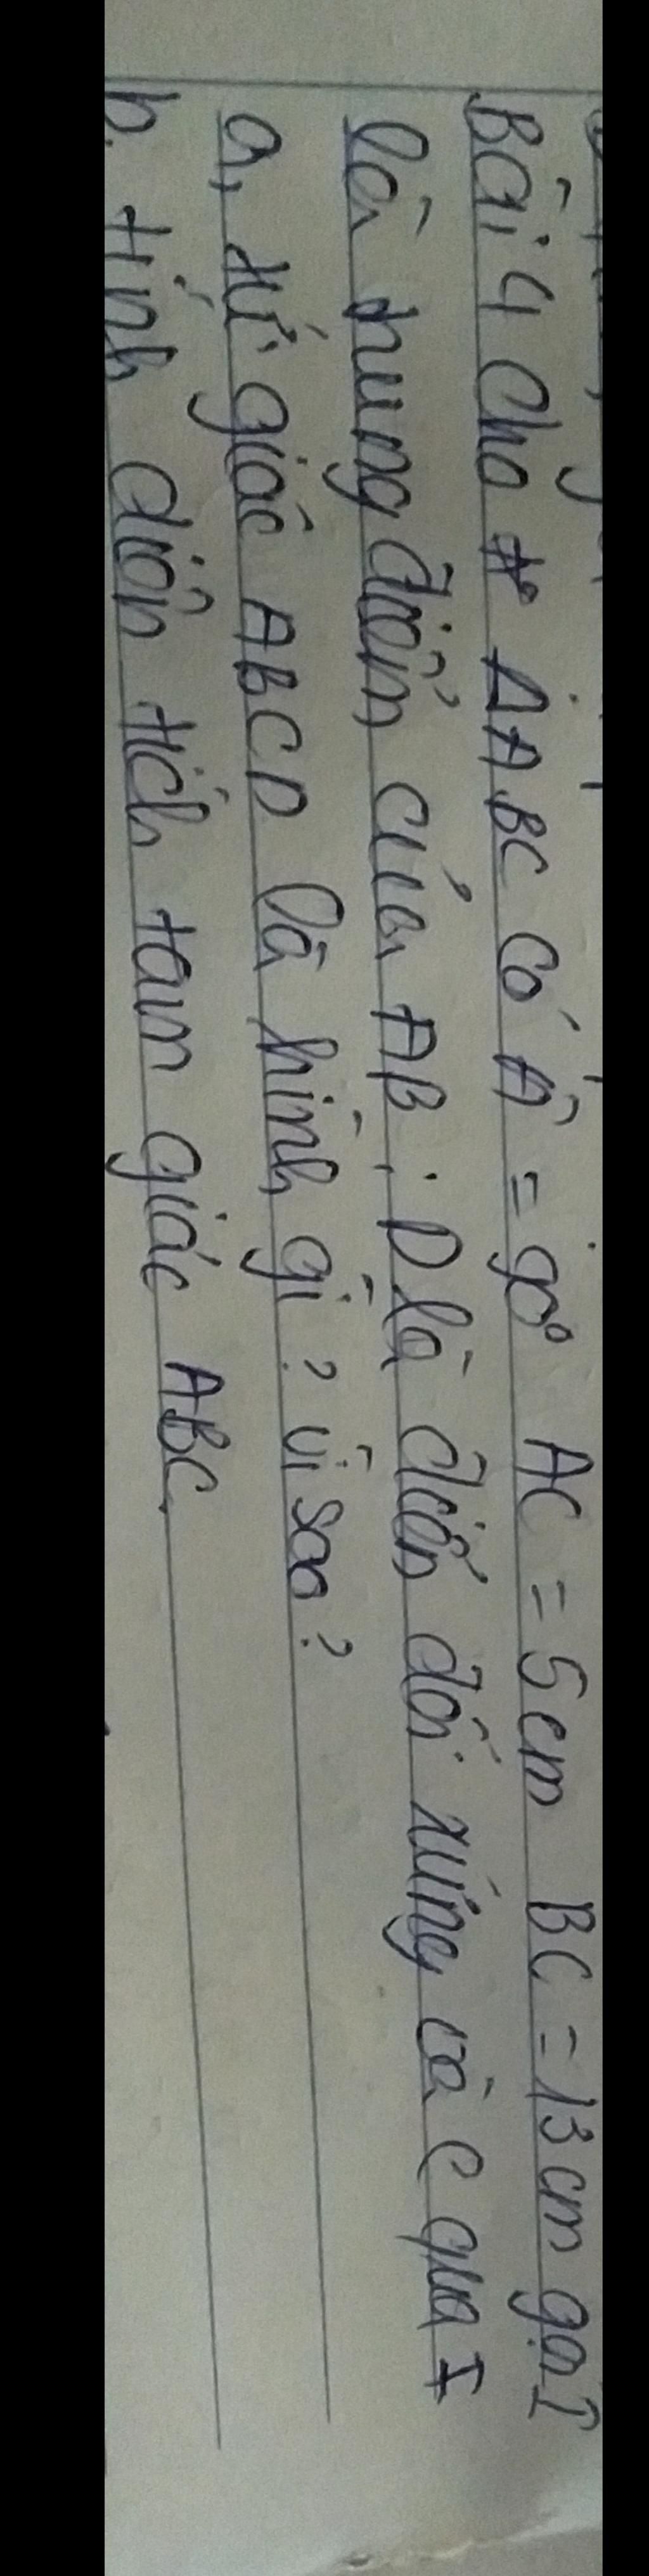 Bài 4 Cho ΔABC có Â = 90° AC = 5cm BC = 13cm gọi I
là trung điểm của AB; D là điểm đối xứng và C qua I
a, tứ giác ABCD là hình gì? vì sao?
b. tính diện tích tam giác ABC.